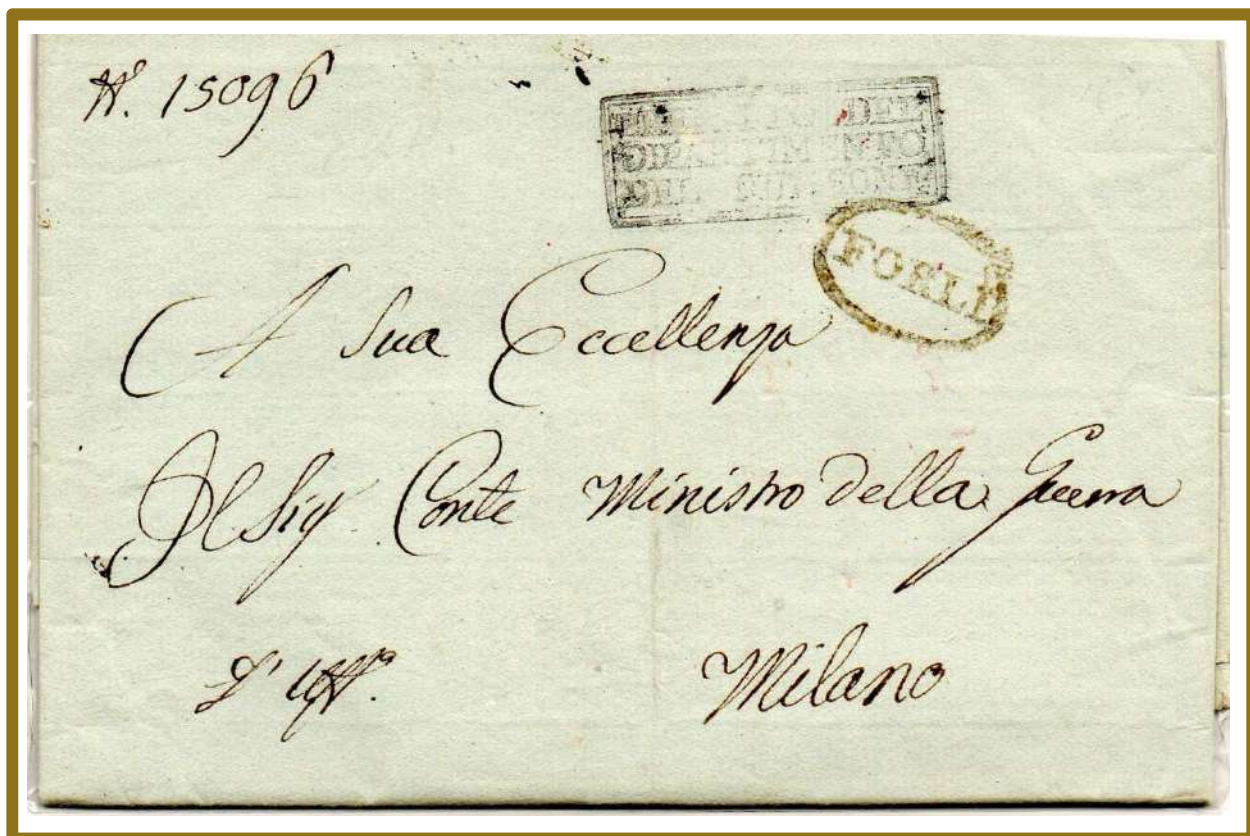 N.º 15096
DEL
DIPARTIMENTO
DEL RUBICONE
FORLI
A Sua Eccellenza
Il Sig.r Conte Ministro della Guerra
D'Uff.º Milano